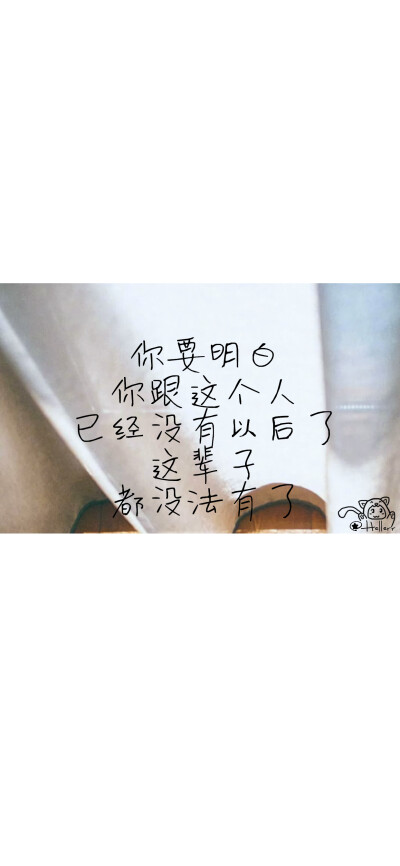 你要明白
你跟这个人
已经没有以后了
这辈子
都没法有了